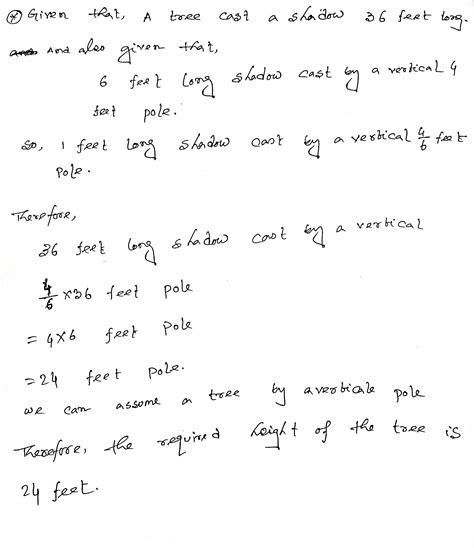 * Given that, A tree cast a shadow 36 feet long.
And also given that,
6 feet long shadow cast by a vertical 4
feet pole.
So, 1 feet long shadow cast by a vertical 4/6 feet
pole.
Therefore,
36 feet long shadow cast by a vertical
4/6 × 36 feet pole
= 4×6 feet pole
= 24 feet pole.
we can assume a tree by a verticale pole
Therefore, the required height of the tree is
24 feet.